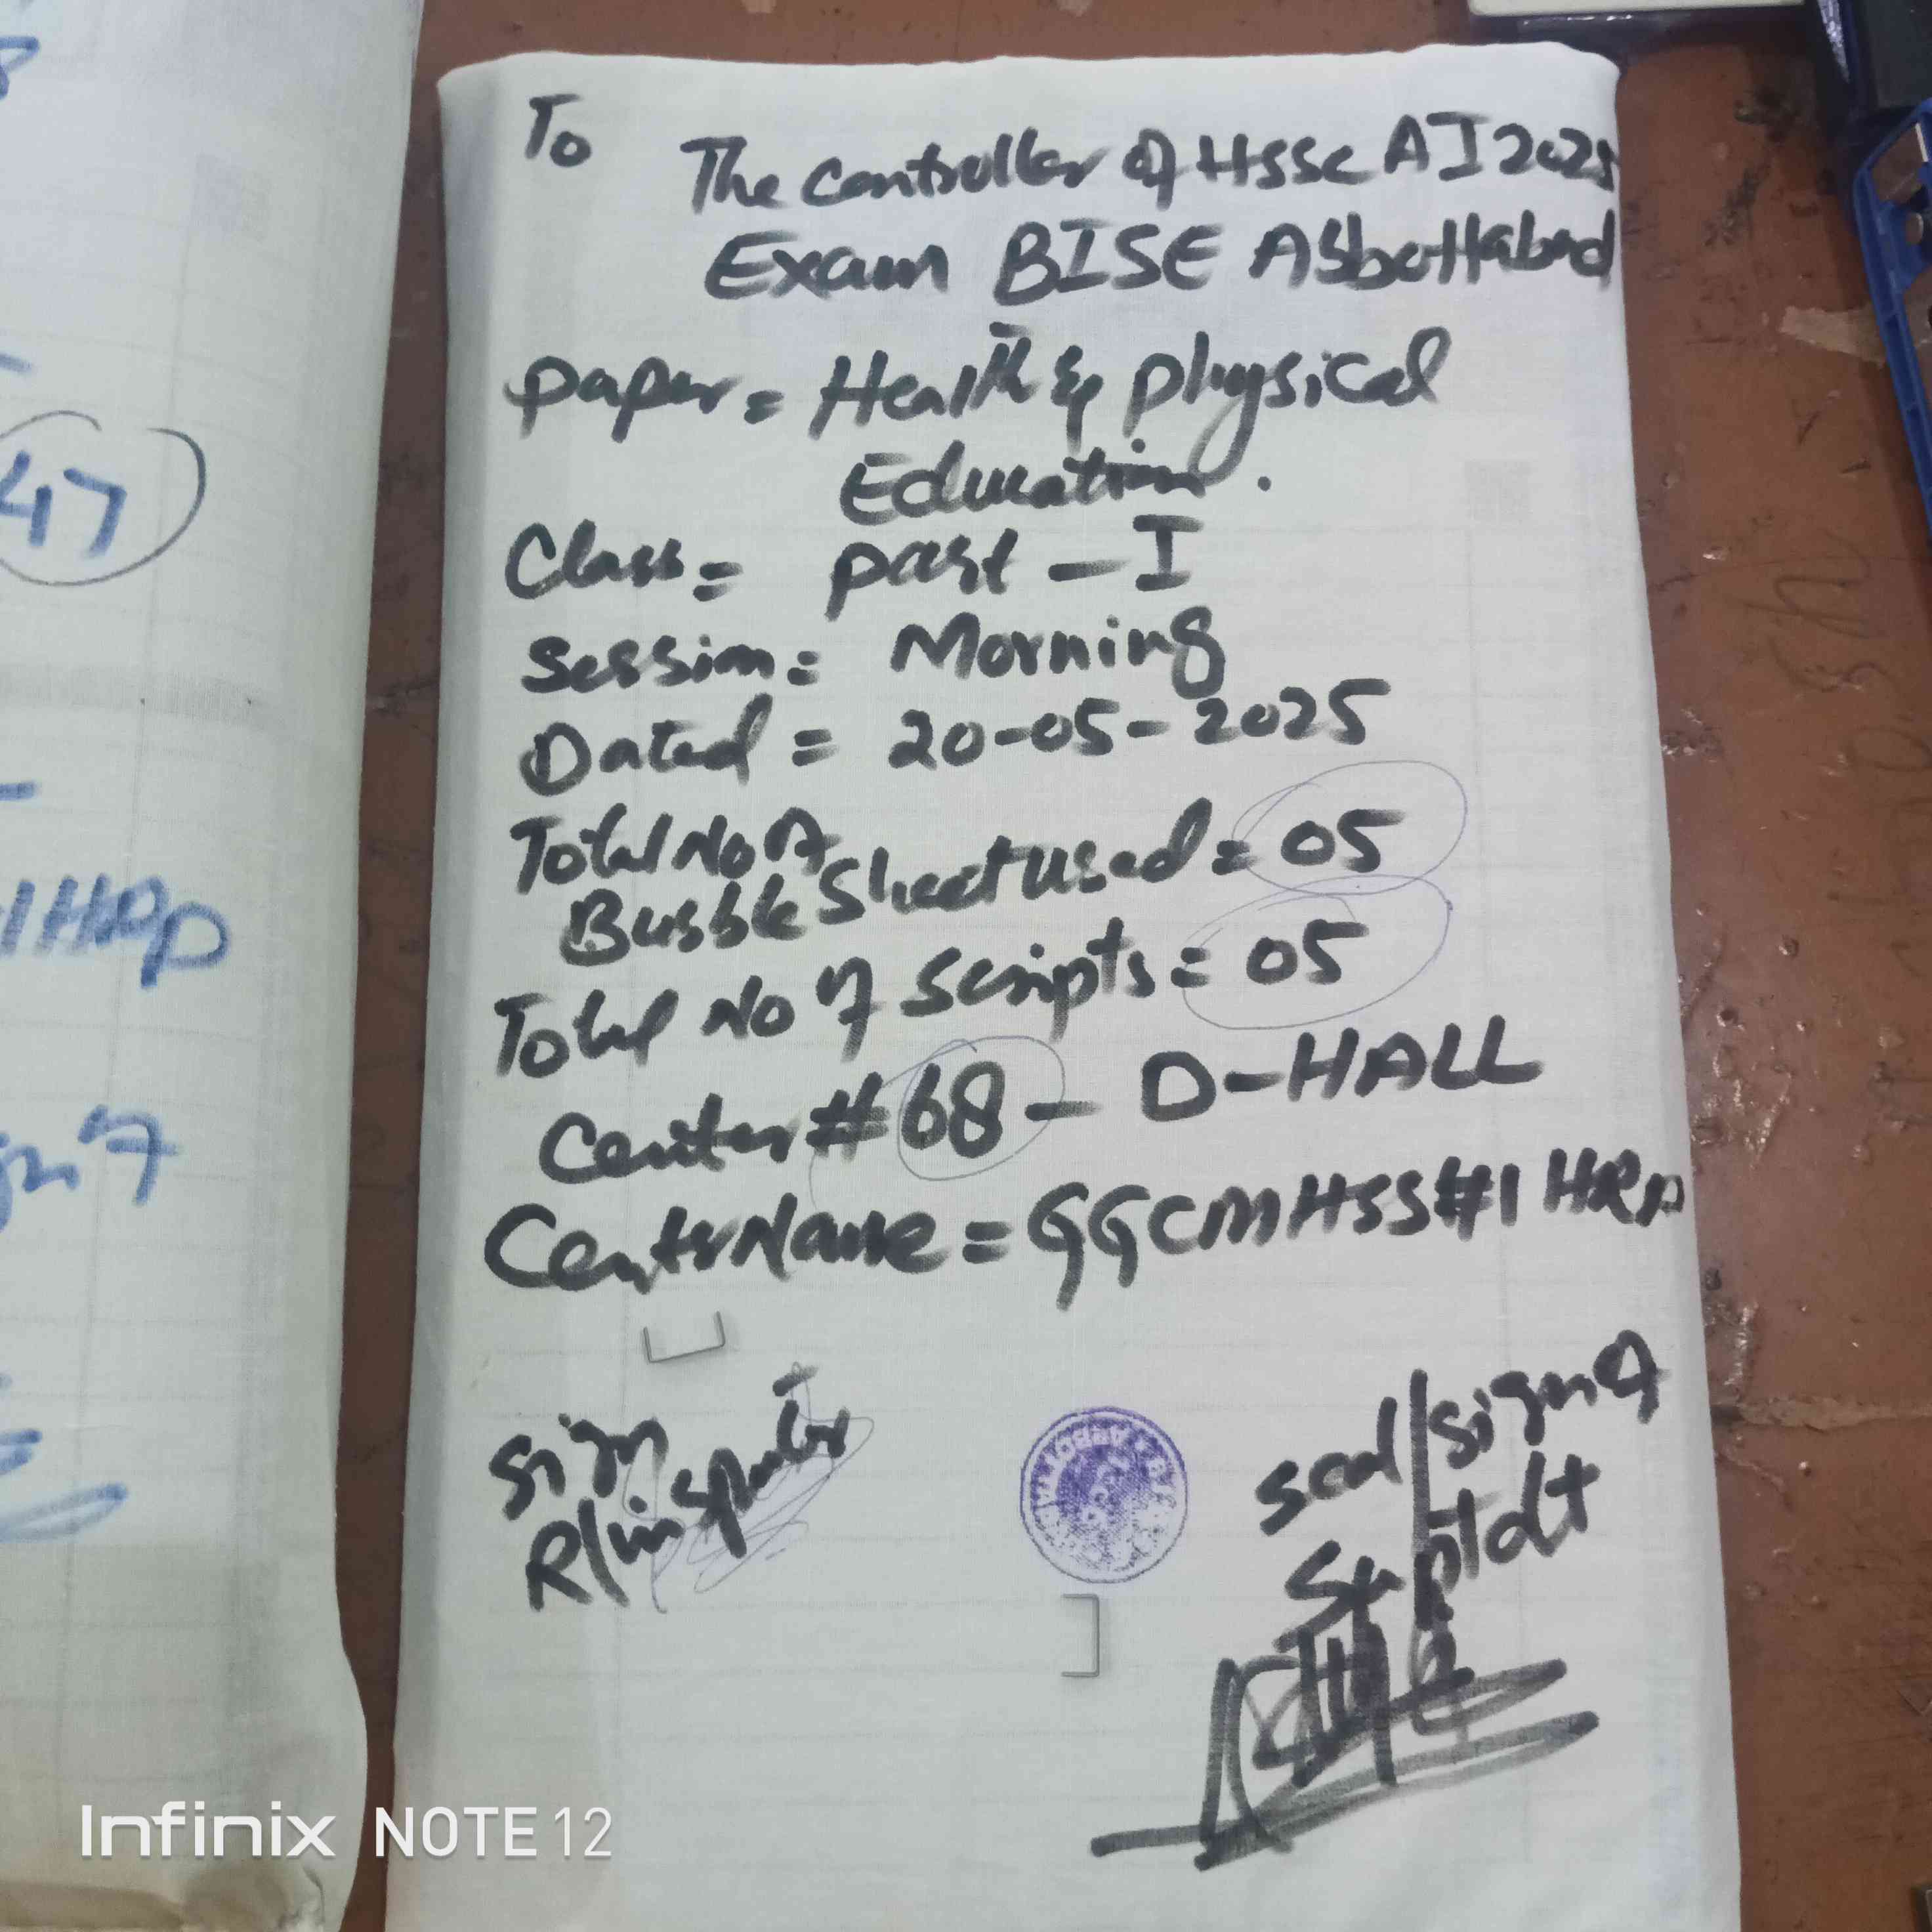 To
The Controller of HSSC AI 2025
Exam BISE Abbottabad
paper = Health & physical
Education.
Class = part - I
Session = Morning
Dated = 20-05-2025
Total No of
Bubble Sheet used = 05
Total No of Scripts = 05
Center # 68 - D-HALL
Center Name = GGCMHSS#1 HRP
Sign
R/inspector
seal/sign of
Suptdt
47
1 HRP
Infinix NOTE 12